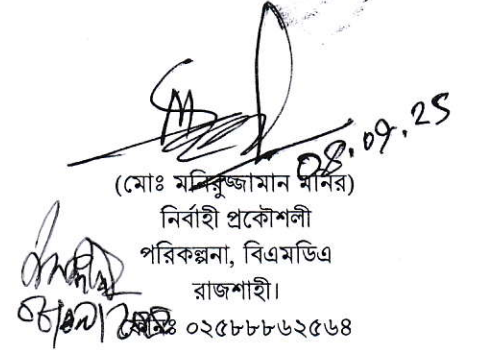 08.09.25
(মোঃ মনিরুজ্জামান মনির)
নির্বাহী প্রকৌশলী
পরিকল্পনা, বিএমডিএ
রাজশাহী।
ফোনঃ ০২৫৮৮৮৬২৫৬৪